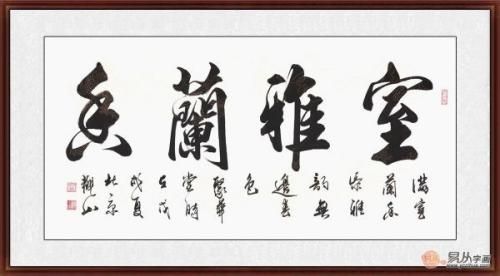 室雅蘭香
满室
兰香
添雅
韵無
邊春
色
聚華
堂時
在戊
戌夏
北京
易从字画